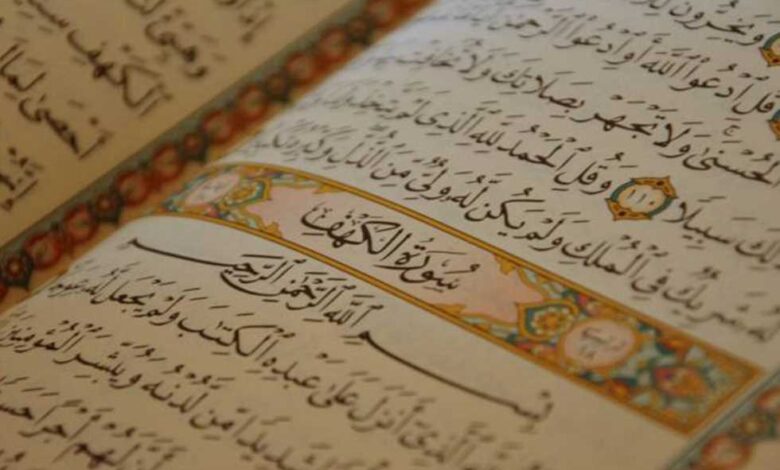 وَيَخِرُّونَ
قُلِ ٱدْعُوا۟ ٱللَّهَ أَوِ ٱدْعُوا۟ ٱلرَّحْمَٰنَ
ٱلْحُسْنَىٰ وَلَا تَجْهَرْ بِصَلَاتِكَ وَلَا تُخَافِتْ
سَبِيلًا ١١٠ وَقُلِ ٱلْحَمْدُ لِلَّهِ ٱلَّذِى لَمْ يَتَّخِذْ
شَرِيكٌ فِى ٱلْمُلْكِ وَلَمْ يَكُن لَّهُۥ وَلِىٌّ مِّنَ ٱلذُّلِّ وَكَبِّرْهُ
سُورَةُ ٱلْكَهْفِ
بِسْمِ ٱللَّهِ ٱلرَّحْمَٰنِ ٱلرَّحِيمِ
ٱلَّذِىٓ أَنزَلَ عَلَىٰ عَبْدِهِ ٱلْكِتَٰبَ وَلَمْ يَجْعَل لَّهُۥ عِوَجَا
شَدِيدًا مِّن لَّدُنْهُ وَيُبَشِّرَ ٱلْمُؤْمِنِينَ
أَنَّ لَهُمْ أَجْرًا
وَهَيِّئْ
ٱلْكَهْفِ
أَحْصَىٰ لِمَا